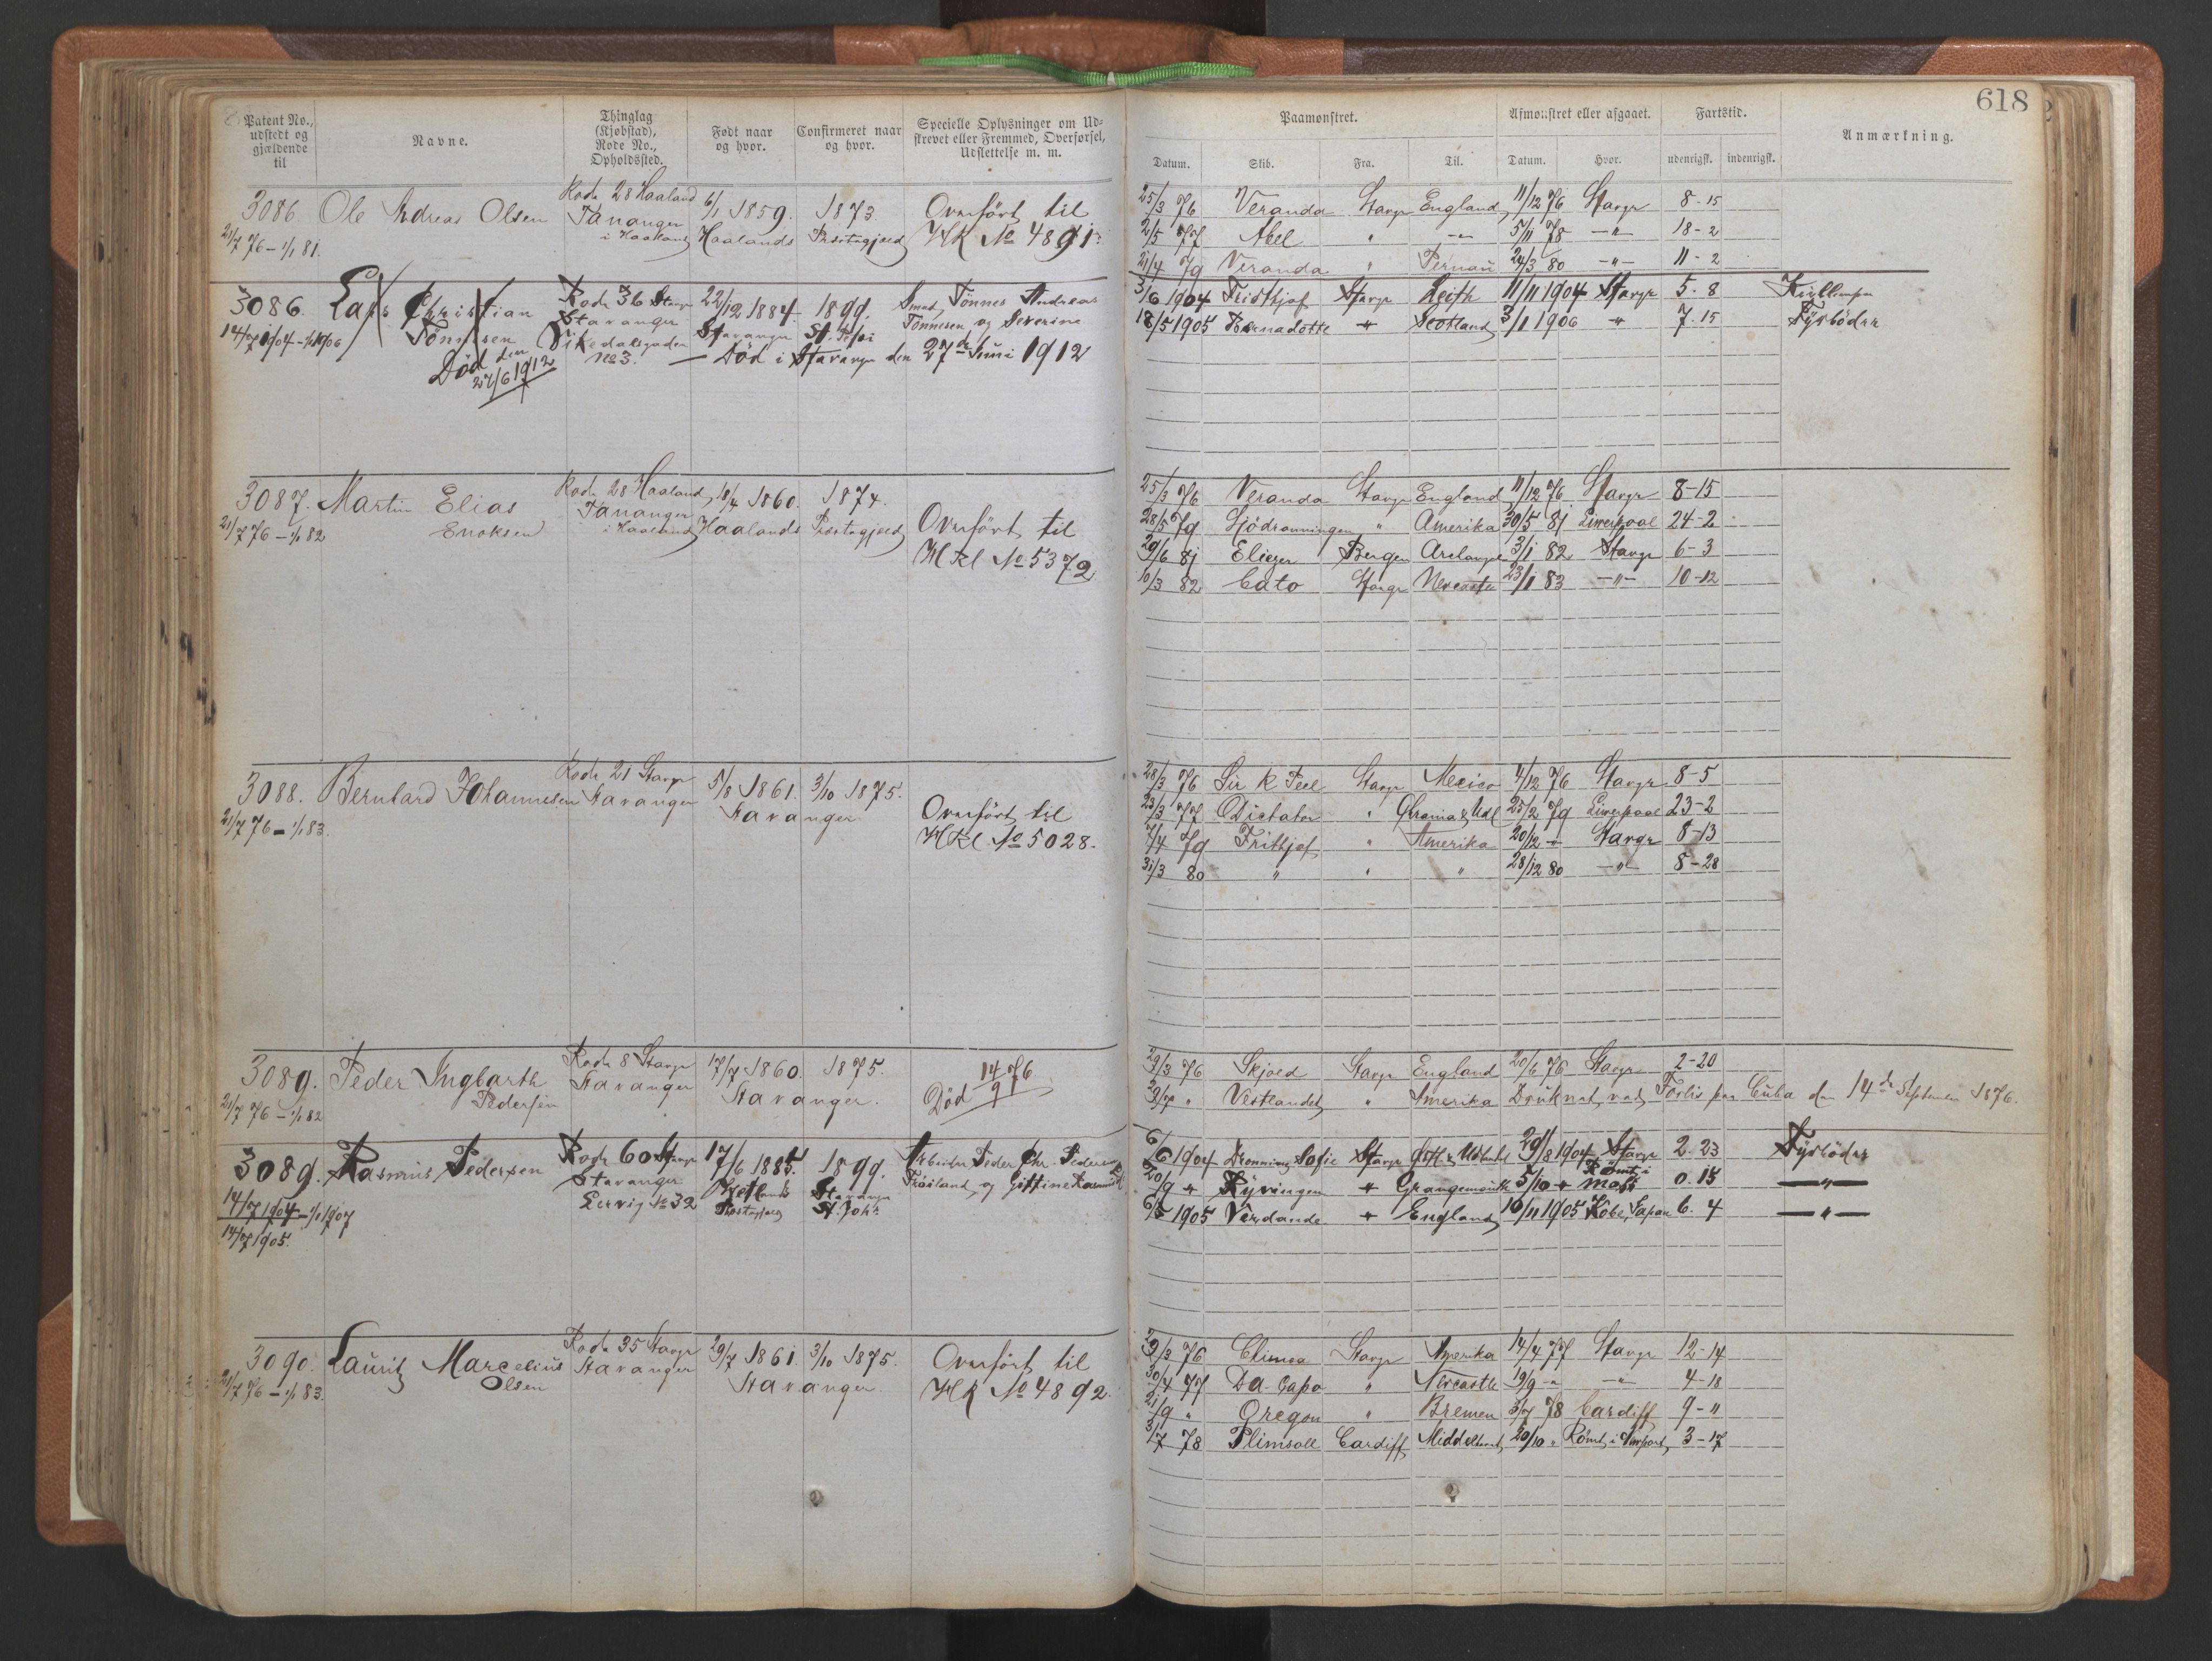 618
Patent No., udstedt og gjældende til
Navne.
Thinglag (Kjøbstad), Rode No., Opholdssted.
Født naar og hvor.
Confirmeret naar og hvor.
Specielle Oplysninger om Udskrevet eller Fremmed, Overførsel, Udslettelse m. m.
Paamønstret.
Afmønstret eller afgaaet.
Fartstid.
Anmærkning.
Datum. Skib. Fra. Til. Datum. Hvor. udenrigsk. indenrigsk.
3086. Ole Andreas Olsen Rode 28 Haaland 6/1 1859. 1873. Overført til
21/7 76 – 1/1 81. Tananger i Haaland Haalands Præstegjæld HK № 4891.
25/3 76 Veranda Stavgr England 11/12 76 Stavgr 8-15
2/5 77 Abel " -"- 5/11 78 -"- 18-2
21/4 79 Veranda " Pernau 24/3 80 -"- 11-2
3086. Lars Christian Rode 36 Stavgr 22/12 1884. 1899. Smed Tønnes Andreas
14/7 1904 – 1/1 1906 Tønnesen Stavanger Stavanger St. Petri Tønnesen og Severine
Død den 27/6 1912 №3. — Død i Stavangr den 27de Juni 1912
3/6 1904 Fridthjof Stavgr Leith 11/11 1904 Stavgr 5. 8
18/5 1905 Bernadotte " Scotland 3/1 1906 " 7. 15 Fyrbøder
3087. Martin Elias Rode 28 Haaland 18/4 1860. 1874.
21/7 76 – 1/1 82 Enoksen Tananger i Haaland Haalands Præstegjæld Overført til
HKl № 5372
25/3 76 Veranda Stavgr England 11/12 76 Stavgr 8-15
28/5 79 Sjødronningen " Amerika 30/5 81 Liverpool 24-2
29/6 81 Eliezer Bergen 3/1 82 Stavgr 6-3
10/3 82 Cato Stavgr Newcastle 23/1 83 -"- 10-12
3088. Bernhard Johannesen Rode 21 Stavgr 5/8 1861. 3/10 1875.
21/7 76 – 1/1 83. Stavanger Stavanger Overført til
HKl № 5028.
28/3 76 Sir R Peel Stavgr Mexico 4/12 76 Stavgr 8-5
23/3 77 Dictator " 25/2 79 Liverpool 23-2
7/4 79 Frithjof " Amerika 20/12 " Stavgr 8-13
31/3 80 " " " 28/12 80 -"- 8-28
3089. Peder Ingbarth Rode 8 Stavgr 17/7 1860. 1875. Død 14/9 76
21/7 76 – 1/1 82 Pedersen Stavanger Stavanger.
29/3 76 Skjold Stavgr England 20/6 76 Stavgr 2-20
" Vestlandet " Amerika Druknet ved Forlis paa Cuba den 14de September 1876.
3089. Rasmus Pedersen Rode 60 Stavgr 17/6 1885. 1899. Arbeider Peder Chr. Pedersen
14/7 1904 – 1/1 1907 Stavanger Hetlands Stavanger Frøiland og Gittine
14/7 1905. Lervig № 32 Præstegjæld St. Joh.
6/6 1904 Dronning Sofie Stavgr 29/8 1904 Stavgr 2. 23 Fyrbøder
20/9 " Kyvingen " Grangemouth 5/10 " Rømt i Moss 0. 15 —"—
6/5 1905 Verdande " England 10/11 1905 Kobe, Japan 6. 4 —"—
3090. Lauritz Marcelius Rode 35 Stavgr 29/7 1861. 3/10 1875. Overført til
21/7 76 – 1/1 83. Olsen Stavanger Stavanger. HK № 4892.
29/3 76 Climea Stavgr Amerika 14/4 77 Stavgr 12-14
30/4 77 Da Capo " Newcastle 19/9 " -"- 4-18
21/9 " Oregon " Bremen 78 Cardiff 9-"
3/7 78 Plimsoll Cardiff Middelhavet 20/10 " Rømt i Newport 3-17